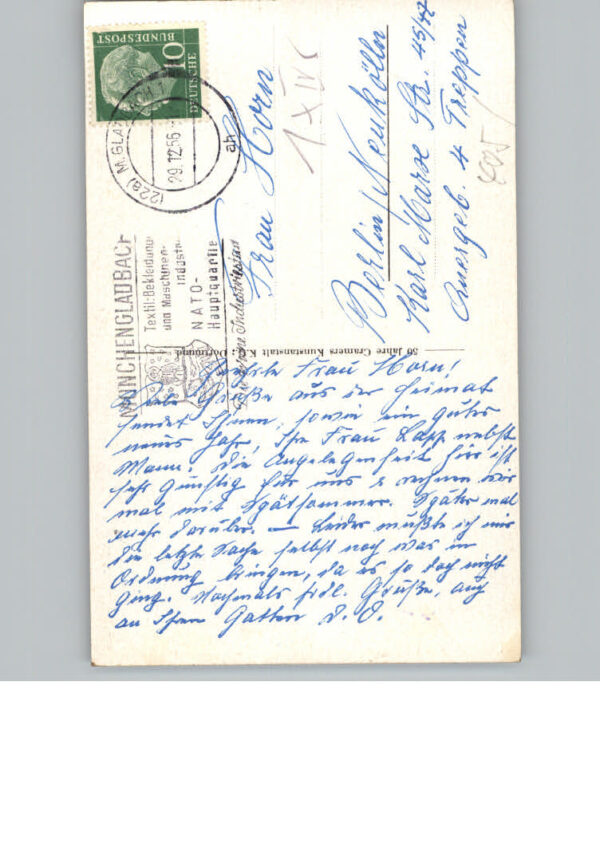 DEUTSCHE
BUNDESPOST
10
(22a) M.GLADBACH 1
29.12.56
ah
MÜNCHENGLADBACH
Textil-Bekleidung
und Maschinen-
industrie
NATO-
Hauptquartier
Frau Horn
Berlin/Neukölln
Karl Marxe Str. 45/47
Quergeb. 4 Treppen
50 Jahre Cramers Kunstanstalt KG., Dortmund
Werte Frau Horn!
Viele Grüße aus der Heimat
sendet Ihnen, sowie ein gutes
neues Jahr, Ihre Frau Lapp nebst
Mann. Die Angelegenheit hier ist
sehr günstig für uns & rechnen wir
mal mit Spätsommer. Später mal
mehr darüber. — Leider mußte ich nur
die letzte Sache selbst noch was in
Ordnung bringen, da es so doch nicht
ging. Nochmals frdl. Grüße, auch
an Ihren Gatten D. O.